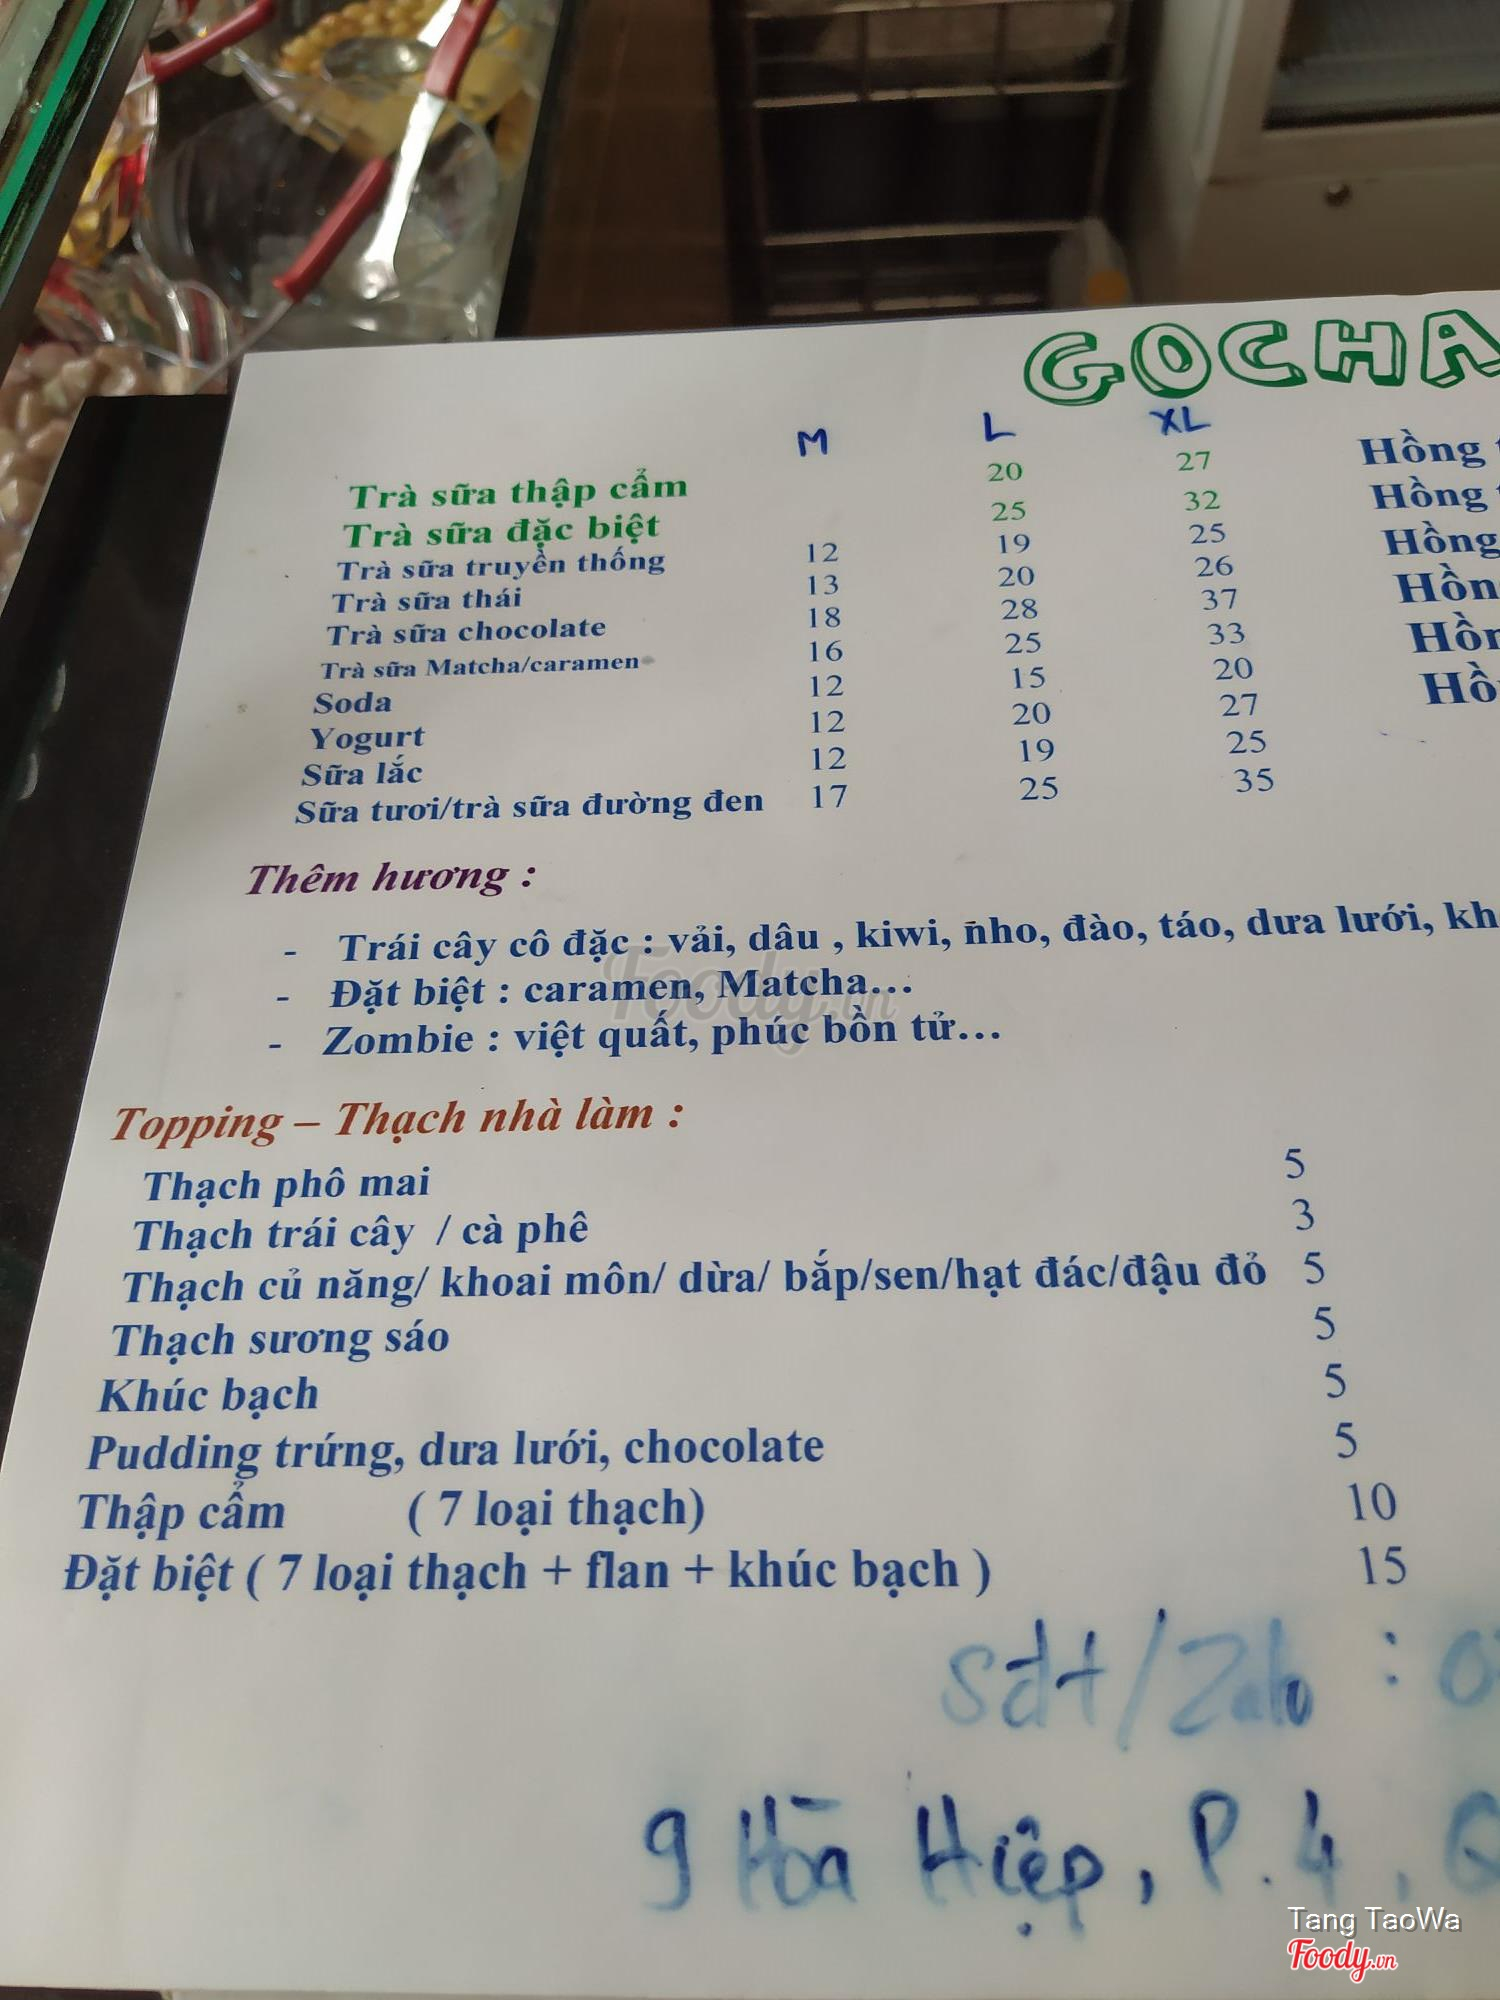 GOCHA
M L XL
Trà sữa thập cẩm 20 27
Trà sữa đặc biệt 25 32
Trà sữa truyền thống 12 19 25
Trà sữa thái 13 20 26
Trà sữa chocolate 18 28 37
Trà sữa Matcha/caramen 16 25 33
Soda 12 15 20
Yogurt 12 20 27
Sữa lắc 12 19 25
Sữa tươi/trà sữa đường đen 17 25 35
Hồng
Hồng
Hồng
Thêm hương :
- Trái cây cô đặc : vải, dâu , kiwi, nho, đào, táo, dưa lưới,
- Đặt biệt : caramen, Matcha...
- Zombie : việt quất, phúc bồn tử...
Topping – Thạch nhà làm :
Thạch phô mai 5
Thạch trái cây / cà phê 3
Thạch củ năng/ khoai môn/ dừa/ bắp/sen/hạt đác/đậu đỏ 5
Thạch sương sáo 5
Khúc bạch 5
Pudding trứng, dưa lưới, chocolate 5
Thập cẩm ( 7 loại thạch) 10
Đặt biệt ( 7 loại thạch + flan + khúc bạch ) 15
Sđt/Zalo :
9 Hòa Hiệp, P.4,
Foody.vn
Tang TaoWa
Foody.vn